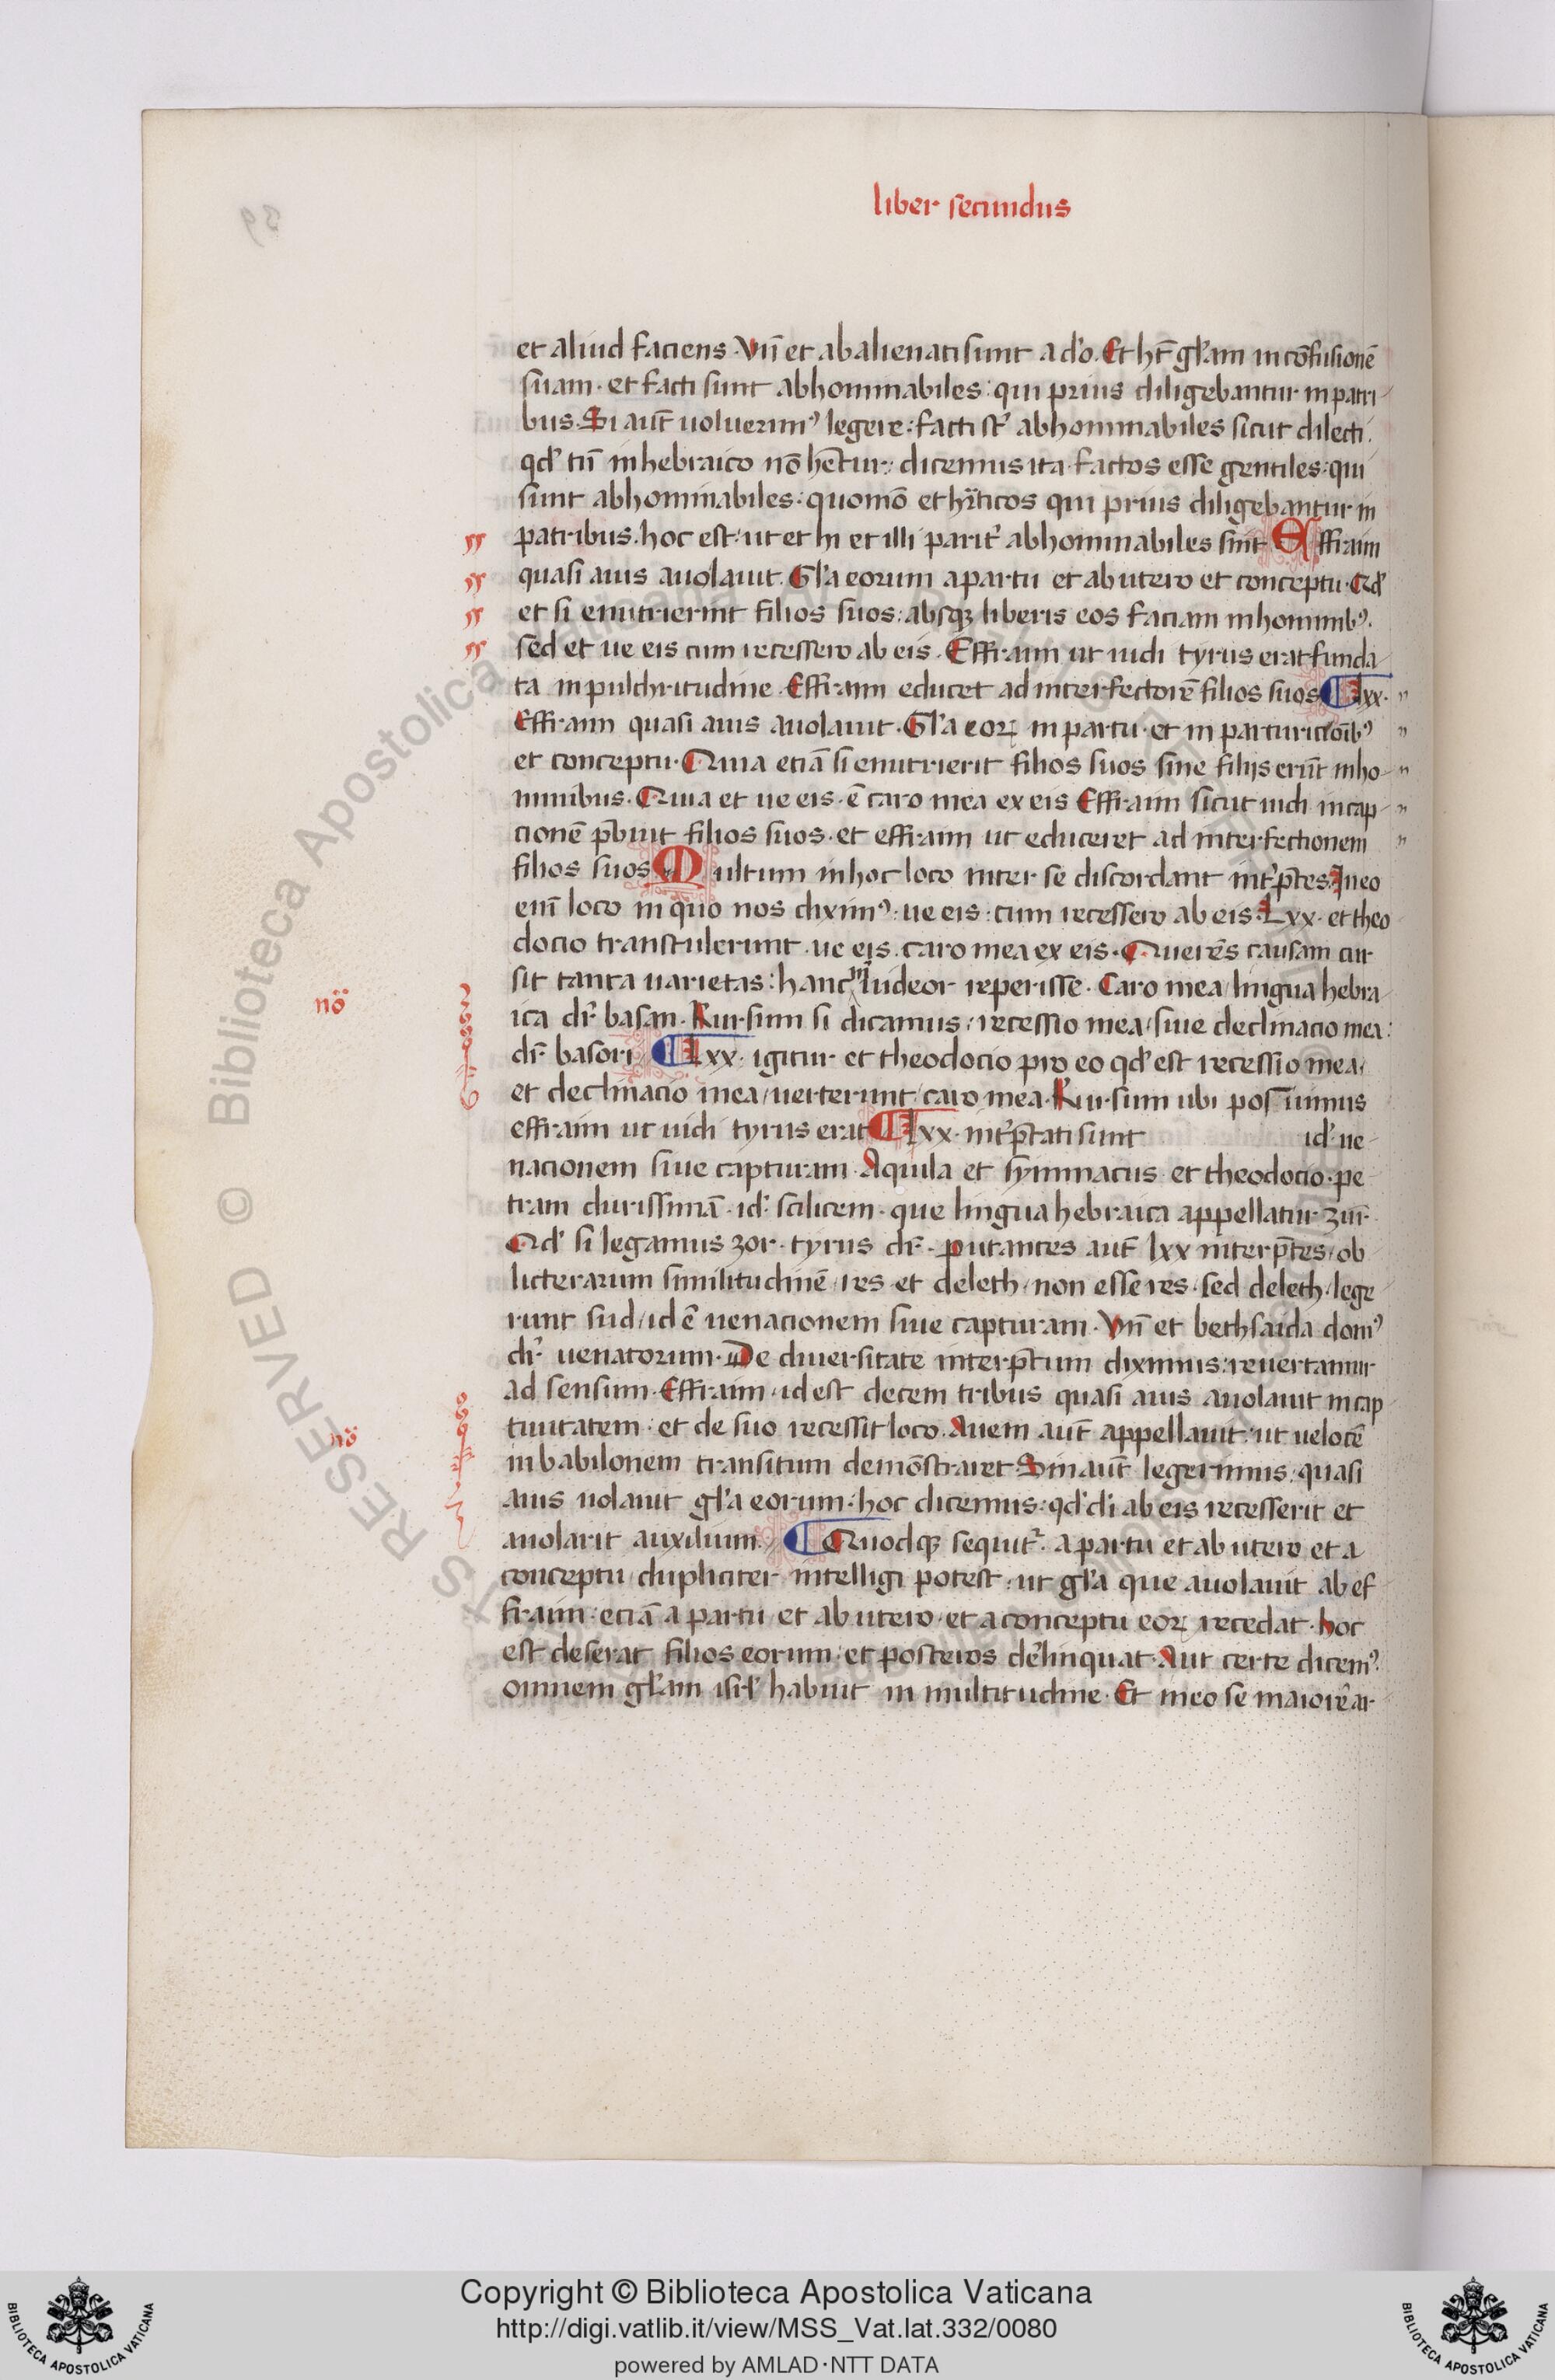 liber secundus
et aliud faciens. Vn̄ et abalienati sunt a do͛. Et hn̄t gl͛am in cōfusionē
suam. et facti sunt abhominabiles: qui prius diligebantur in patri
bus. Si aut̄ uoluerimꝰ legere: facti st͛ abhominabiles sicut dilecti.
qd͛ tn̄ in hebraico nō hētur: dicemus ita factos esse gentiles: qui
sunt abhominabiles: quomō et hīticos qui prius diligebantur in
patribus. hoc est: ut et hi et illi parit͛ abhominabiles sint Effraim
quasi auis auolauit. Gl͛a eorum a partu et ab utero et conceptu. Qd͛
et si enutrierint filios suos: absqꝫ liberis eos faciam in hominibꝰ.
sed et ue eis cum recessero ab eis. Effraim ut uidi tyrus erat funda
ta in pulchritudine. Effraim educet ad interfectorē filios suos lxx.
Effraim quasi auis auolauit. Gl͛a eoꝝ in partu. et in parturicōibꝰ
et conceptu. Quia eciā si enutrierit filios suos sine filijs erūt in ho
minibus. Quia et ue eis. ē caro mea ex eis Effraim sicut uidi in cap
cionē p̄buit filios suos. et effraim ut educeret ad interfectionem
filios suos Multum in hoc loco inter se discordant int͛p̄tes. In eo
enī loco in quo nos diximꝰ: ue eis: cum recessero ab eis. Lxx. et theo
docio transtulerunt. ue eis. caro mea ex eis. Querēs causam cur
sit tanta uarietas: hanc m̄ uideor reperisse. Caro mea lingua hebra
nō
ica dr͛ basari. Rursum si dicamus, recessio mea, siue declinacio mea:
dr͛ basori Lxx. igitur et theodocio pro eo qd͛ est recessio mea,
et declinacio mea, uerterunt, caro mea. Rursum ubi pos̄uimus
effraim ut uidi tyrus erat Lxx. int͛p̄tati sunt id͛. ue
nacionem siue capturam. Aquila et symmacus et theodocio. pe
tram durissimā. id͛. scilicem. que lingua hebraica appellatur zur.
Qd͛ si legamus zor. tyrus dr͛. putantes aut̄ lxx interp̄tes, ob
licterarum similitudinē, res et deleth, non esse res. sed deleth, lege
runt sud, id ē uenacionem siue capturam. Vn̄ et bethsaida domꝰ
dr͛ uenatorum. De diuersitate interp̄tum diximus: reuertamur
ad sensum. Effraim. id est decem tribus quasi auis auolauit in cap
tiuitatem. et de suo recessit loco. Auem aut̄ appellauit: ut uelocē
nō
in babilonem transitum demōstraret. Sin aut̄ legerimus: quasi
auis uolauit gl͛a eorum: hoc dicemus: qd͛ di͛ ab eis recesserit et
auolarit auxilium. Quodqꝫ sequit͛. a partu et ab utero et a
conceptu, dupliciter intelligi potest. ut gl͛a que auolauit ab ef
fraim. eciā a partu et ab utero. et a conceptu eoꝝ recedat. hoc
est deserat filios eorum. et posteros de͛linquat. Aut certe dicemꝰ.
omnem gl͛am isrl͛ habuit in multitudine. Et in eo se maiorē ar